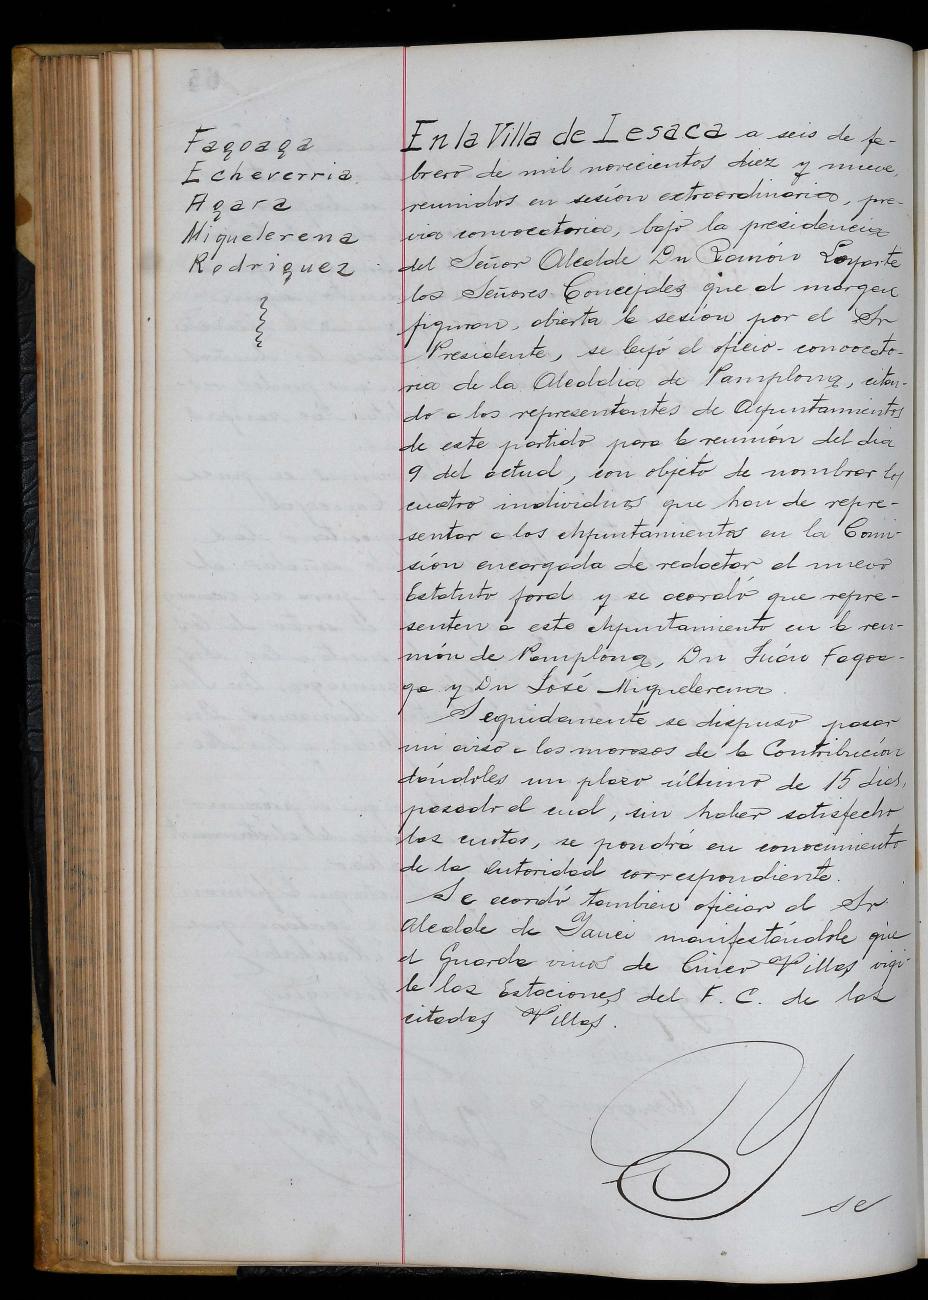 Fagoaga
Echeverria
Agara
Miguelerena
Rodriguez
En la Villa de Lesaca a seis de fe-
brero de mil novecientos diez y nueve,
reunidos en sesión extraordinaria, pre-
via convocatoria, bajo la presidencia
del Señor Alcalde Dn Ramón Loyarte
los Señores Concejales que al margen
figuran, abierta la sesion por el Sr
Presidente, se leyó el oficio-convocato-
ria de la Alcaldia de Pamplona, citan-
do a los representantes de Ayuntamientos
de este partido para la reunión del dia
9 del actual, con objeto de nombrar los
cuatro individuos que han de repre-
sentar a los Ayuntamientos en la Comi-
sión encargada de redactar el nuevo
Estatuto foral y se acordó que repre-
senten a este Ayuntamiento en la reu-
nión de Pamplona, Dn Juán Fagoa-
ga y Dn José Miguelerena.
Seguidamente se dispuso pasar
un aviso a los morosos de la Contribución
dándoles un plazo último de 15 dias,
pasado el cual, sin haber satisfecho
las cuotas, se pondrá en conocimiento
de la autoridad correspondiente.
Se acordó tambien oficiar al Sr
Alcalde de Yanci manifestándole que
el Guarda vinos de Cinco Villas vigi-
le las Estaciones del F. C. de las
citadas Villas.
Y
se